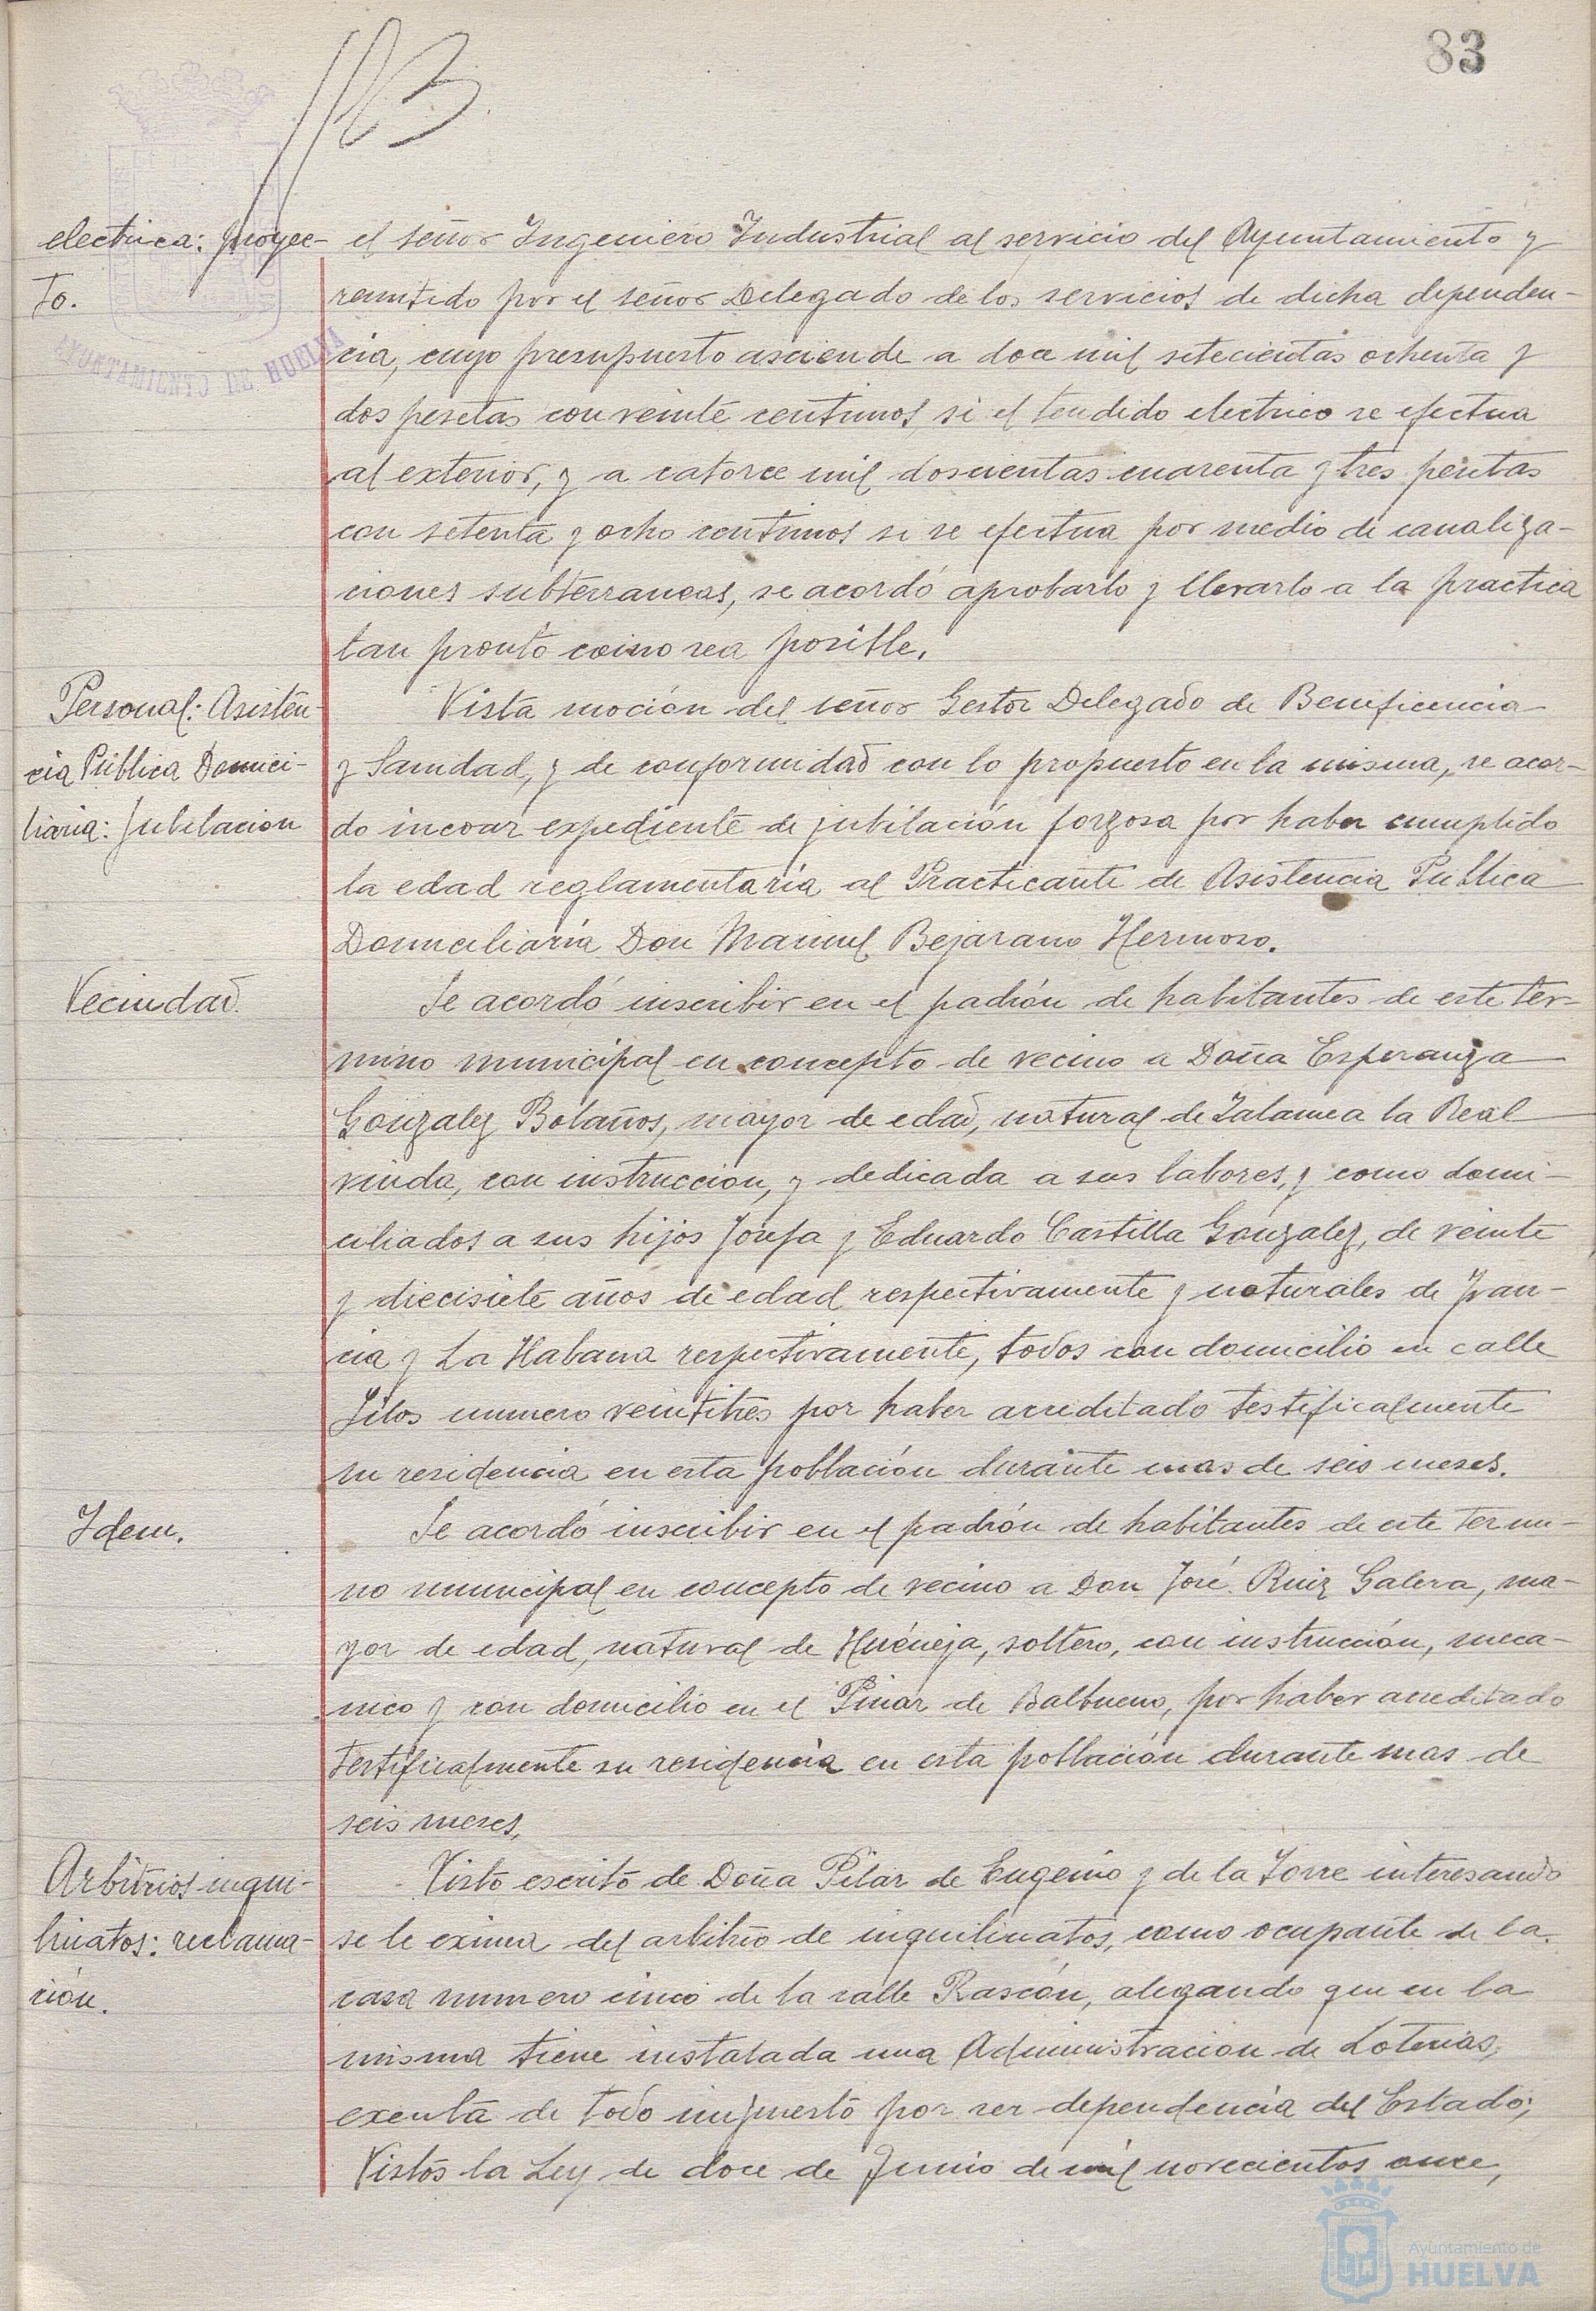 83
113
electrica: proyec-
to.
el señor Ingeniero Industrial al servicio del Ayuntamiento y
remitido por el señor Delegado de los servicios de dicha dependen-
cia, cuyo presupuesto asciende a doce mil setecientas ochenta y
dos pesetas con veinte centimos si el tendido electrico se efectua
al exterior, y a catorce mil doscientas cuarenta y tres pesetas
con setenta y ocho centimos si se efectua por medio de canaliza-
ciones subterraneas, se acordó aprobarlo y llevarlo a la practica
tan pronto como sea posible.
Personal: Asisten-
cia Pública Domici-
liaria: Jubilacion
Vista moción del señor Gestor Delegado de Beneficencia
y Sanidad, y de conformidad con lo propuesto en la misma, se acor-
do incoar expediente de jubilación forzosa por haber cumplido
la edad reglamentaria al Practicante de Asistencia Publica
Domiciliaria Don Manuel Bejarano Hermoso.
Vecindad.
Se acordó inscribir en el padrón de habitantes de este ter-
mino municipal en concepto de vecino a Doña Esperanza
Gonzalez Bolaños, mayor de edad, natural de Zalamea la Real
viuda, con instruccion, y dedicada a sus labores, y como domi-
ciliados a sus hijos Josefa y Eduardo Castilla Gonzalez, de veinte
y diecisiete años de edad respectivamente y naturales de Fran-
cia y La Habana respectivamente, todos con domicilio en calle
numero veintitrés por haber acreditado testificalmente
su residencia en esta población durante mas de seis meses.
Idem.
Se acordó inscribir en el padrón de habitantes de este termi-
no municipal en concepto de vecino a Don José Ruiz Galera, ma-
yor de edad, natural de Huéneja, soltero, con instrucción, meca-
nico y con domicilio en el Pinar de Balbueno, por haber acreditado
testificalmente su residencia en esta población durante mas de
seis meses.
Arbitrios inqui-
linatos: reclama-
ción.
Visto escrito de Doña Pilar de Eugenio y de la Torre interesando
se le exima del arbitrio de inquilinatos, como ocupante de la
casa numero cinco de la calle Rascón, alegando que en la
misma tiene instalada una Administracion de Loterias,
exenta de todo impuesto por ser dependencia del Estado;
Vistos la Ley de doce de Junio de mil novecientos once,
AYUNTAMIENTO DE HUELVA
Ayuntamiento de
HUELVA